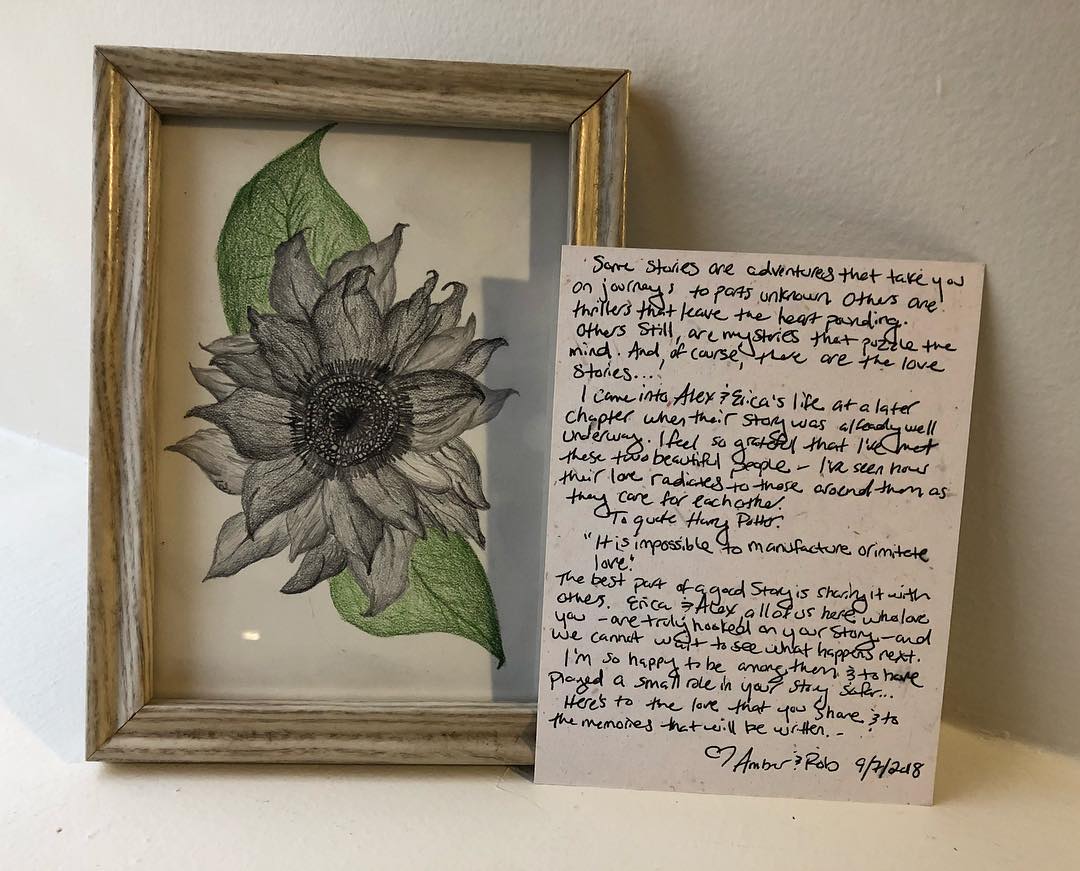 Some stories are adventures that take you
on journeys to parts unknown. Others are
thrillers that leave the heart pounding.
Others still, are mysteries that puzzle the
mind. And, of course, there are the love
stories....
I came into Alex & Erica's life at a later
chapter when their story was already well
underway. I feel so grateful that I've met
these two beautiful people - I've seen how
their love radiates to those around them as
they care for each other.
To quote Harry Potter:
"It is impossible to manufacture or imitate
love."
The best part of a good story is sharing it with
others. Erica & Alex, all of us here who love
you - are truly hooked on your story - and
we cannot wait to see what happens next.
I'm so happy to be among them & to have
played a small role in your story so far...
Here's to the love that you share & to
the memories that will be written. -
♡ Amber & Rob 9/7/2018